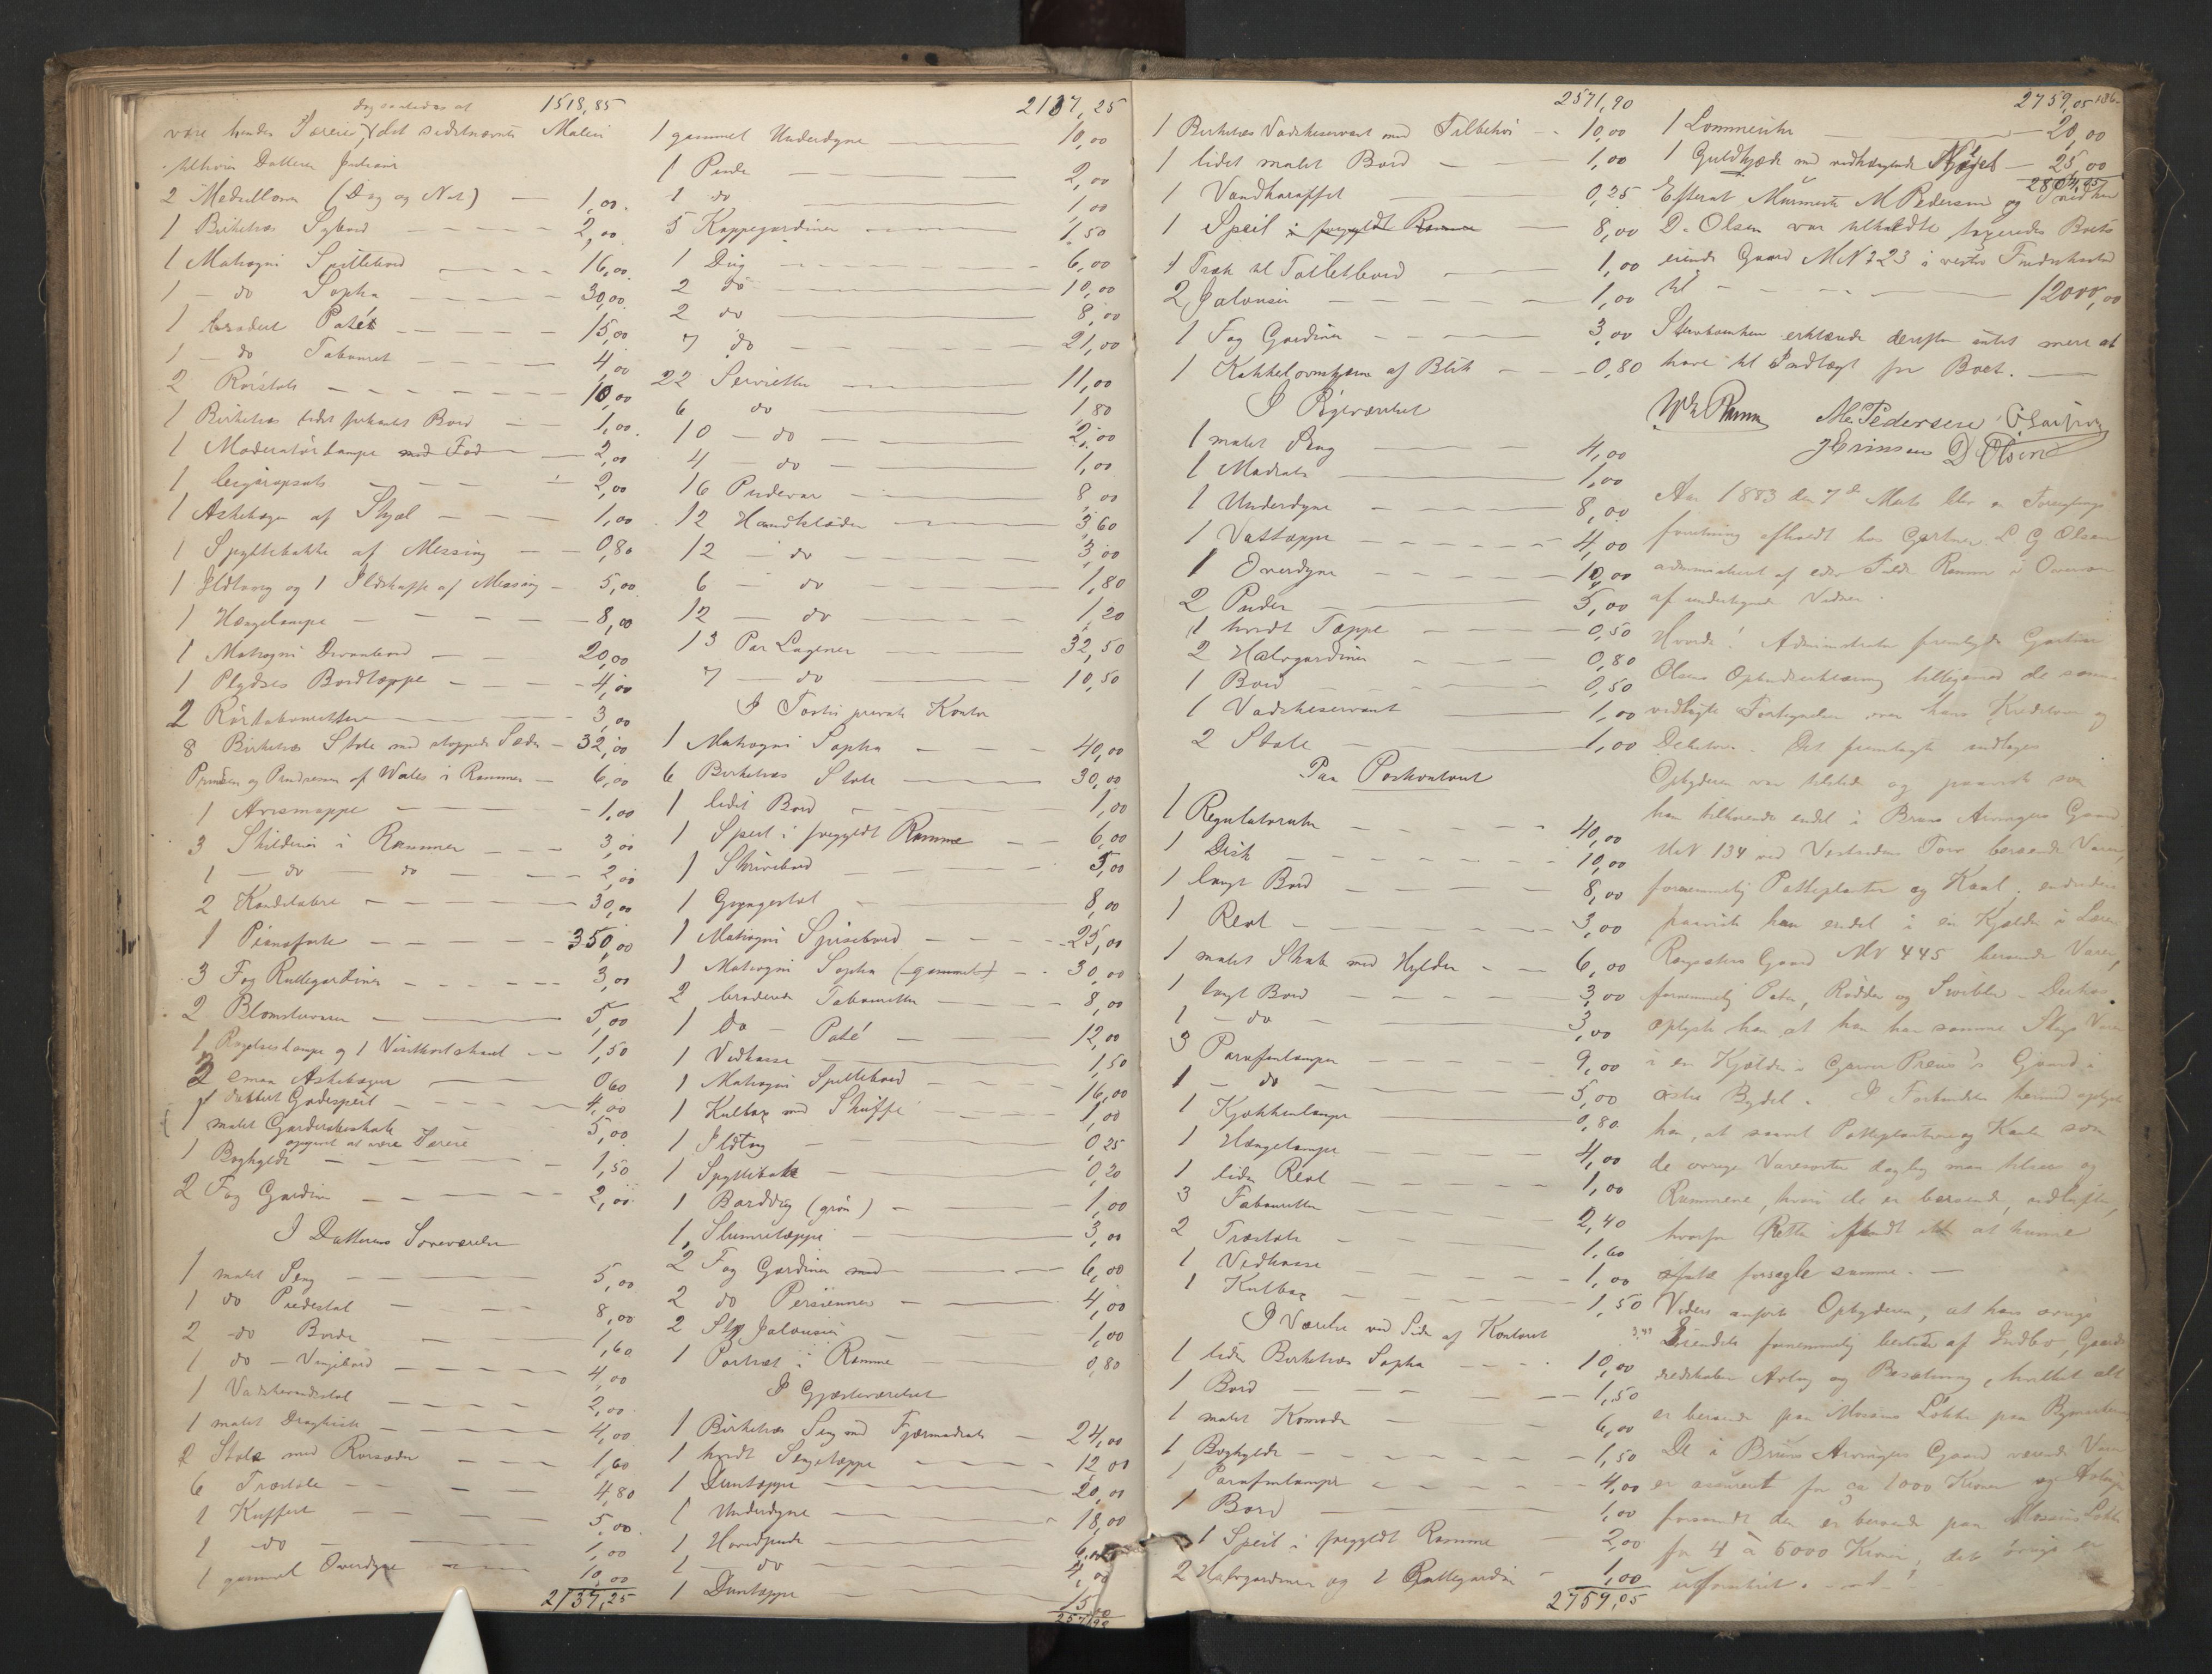 dog saaledes at 1518,85
være hendes Særeie, det sidstnævnte Maleri
tilhører Datteren
2 Medailloner (Dag og Nat) — 1,00
1 Birketræs Sybord — 2,00
1 Mahogni Spillebord — 16,00
1 — do Sopha — 30,00
1 broderet Paté — 15,00
1 — do Tabouret — 4,00
2 Rørstole — 10,00
1 Birketræs lidet firkantet Bord — 1,00
1 Moderatørlampe med Fod — 2,00
1 Cigaropsats — 2,00
1 Askebæger af Skjæl — 1,00
1 Spyttebakke af Messing — 0,80
1 Ildtang og 1 Ildskuffe af Messing — 5,00
1 Hængelampe — 8,00
1 Mahogni Divanbord — 20,00
1 Plydses Bordtæppe — 4,00
2 Rørtabouretter — 3,00
8 Birketræs Stole med stoppede Sæder — 32,00
Prindsen og Prindsessen af Wales i Rammer — 6,00
1 Avismappe — 1,00
3 Skilderier i Rammer — 3,00
1 — do — do — 2,00
2 Kandelabre — 30,00
1 Pianoforte — 350,00
3 Fag Rullegardiner — 3,00
2 Blomstervaser — 5,00
1 Røgelseslampe og 1 Visitkortskaal — 1,50
2 smaa Askebægere — 0,60
1 dobbelt Gadespeil — 4,00
1 malet Garderobeskab — 5,00
opgivet at være Særeie
1 Boghylde — 1,50
2 Fag Gardiner — 2,00
I Datterens Soveværelse
1 malet Seng — 5,00
1 do Piedestal — 8,00
2 do Borde — 1,60
1 do — Vingebord — 4,00
1 Vadskevandsstol — 2,00
1 malet Dragkiste — 4,00
2 Stole med Rørsæder — 1,60
6 Træstole — 4,80
1 Kuffert — 5,00
1 do — 1,00
1 gammel Overdyne — 10,00
2137,25
2137,25
1 gammel Underdyne — 10,00
1 Pude — 2,00
1 do — 1,00
5 Kappegardiner — 1,50
1 Dug — 6,00
2 do — 10,00
2 do — 8,00
7 do — 21,00
22 Servietter — 11,00
6 do — 1,80
10 — do — 2,00
4 — do — 1,00
16 Pudevar — 8,00
12 Haandklæder — 3,60
12 — do — 3,00
6 — do — 1,80
12 — do — 1,20
13 Par Lagener — 32,50
7 — do — 10,50
I Fostis private Kontor
1 Mahogni Sopha — 40,00
6 Birketræs Stole — 30,00
1 lidet Bord — 1,00
1 Speil i forgyldt Ramme — 6,00
1 Skrivebord — 5,00
1 Gyngestol — 8,00
1 Mahogni Spisebord — 25,00
1 Mahogni Sopha (gammel) — 30,00
2 broderede Tabouretter — 8,00
1 do — Paté — 12,00
1 Vedkasse — 1,50
1 Mahogni Spillebord — 16,00
1 Kulbox med Skuffe — 1,00
1 Ildtang — 0,25
1 Spyttebakke — 0,20
1 Borddug (grøn) — 1,00
1 Slumretæppe — 3,00
2 Fag Gardiner med — 6,00
2 do Persienner — 4,00
2 Stk Jalousier — 1,00
1 Portræt i Ramme — 0,80
I Gjæsteværelset
1 Birketræs Seng med Fjærmadrats — 24,00
1 hvidt Sengetæppe — 12,00
1 Duntæppe — 20,00
1 Underdyne — 18,00
1 Hovedpude — 6,00
1 — do — 4,00
1 Duntæppe — 15,00
2571,90
2571,90
1 Birketræs Vadskeservant med Tilbehør — 10,00
1 lidet malet Bord — 1,00
1 Vandkaraffel — 0,25
1 Speil i forgyldt Ramme — 8,00
1 Træk til Toiletbord — 1,00
2 Jalousier — 1,00
1 Fag Gardiner — 3,00
1 Kakkelovnskjærm af Blik — 0,80
I Pigeværelset
1 malet Seng — 4,00
1 Madrats — 1,00
1 Underdyne — 8,00
1 Vattæppe — 4,00
1 Overdyne — 10,00
2 Puder — 5,00
1 hvidt Tæppe — 0,50
2 Halvgardiner — 0,80
1 Bord — 0,50
1 Vadskeservant — 1,00
2 Stole — 1,00
Paa Postkontoret
1 Regulatoruhr — 40,00
1 Disk — 10,00
1 langt Bord — 8,00
1 Reol — 3,00
1 malet Skab med Hylder — 6,00
1 langt Bord — 3,00
1 — do — 3,00
3 Parafinlamper — 9,00
1 — do — 5,00
1 Kjøkkenlampe — 0,80
1 Hængelampe — 4,00
1 liden Reol — 1,00
3 Tabouretter — 2,40
2 Træstole — 1,60
1 Vedkasse — 1,00
1 Kulbox — 1,50
I Værelse ved Siden af Kontoret
1 liden Birketræs Sopha — 10,00
1 Bord — 1,50
1 malet Komode — 6,00
1 Boghylde — 1,50
1 Parafinlampe — 4,00
1 Bord — 1,00
1 Speil i forgyldt Ramme — 2,00
2 Halvgardiner og 1 Rullegardin — 1,00
2759,05
2759,05 186.
1 Lommeuhr — 20,00
1 Guldkjæde med vedhængende Nøgel — 25,00
2804,05
Efterat Murmester M Pedersen og Snedker
D. Olsen var tilkaldte taxeredes Boets
eiende Gaard MN 323 i vestre Fredrikstad
til — 12000,00
Skrabomben erklærede derefter intet mere at
have til Indlægt for Boet. —
M. Pedersen
D. Olsen
Aar 1883 den 7de Marts blev en Forseglings
forretning afholdt hos Gartner L G Olsen
administreret af edsv Fuldm Ramm i Overvær
af undertegnede Vidner.
Hvorda! Administrator fremlagde Gartner
Olsens Opbudserklæring tilligemed de samme
vedlagte Fortegnelser over hans Kreditorer og
Debitorer. Det fremlagte indtages
Opbyderen var tilstede og paaviste som
ham tilhørende endel i Bruns Arvingers Gaard
MN 134 ved Vestsidens Torv beroende Varer,
fornemmelig Potteplanter og Kaal; endvidere
paaviste han endel i en Kjelder i Læge
Gaard MN 445 beroende Varer,
fornemmelig Poteter, Rødder og Sviblør. Derhos
oplyste han at han har samme Slags Varer
i en Kjelder i Garver Preus's Gaard i
østre Bydel. I Forbindelse hermed oplyste
han, at saavel Potteplanterne og Kaalen som
de øvrige Varesorter daglig maa tilsees og
Rummene, hvori de er beroende, udluftes,
hvorfor Retten ifandt ikke at kunne
forsegle samme. —
Videre anførte Opbyderen, at hans øvrige
Eiendele fornemmelig bestaar af Indbo, Gaards
redskaber Avling og Besætning, hvilket alt
er beroende paa Mosseus Løkke paa Bymarken
De i Bruns Arvingers Gaard værende Varer
er assureret for ca 1000 Kroner og Avling
forsaavidt den er beroende paa Mosseus Løkke
for 4 à 5000 Kroner; det øvrige er
uassureret.